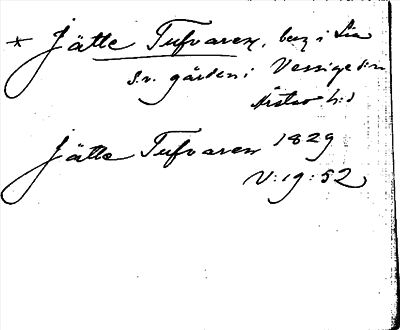 * Jätte Tufvaren, berg i Lia
s.v. gården i Vessige s:n
Årstad h:d
Jätte Tufvaren 1829
V:19:52